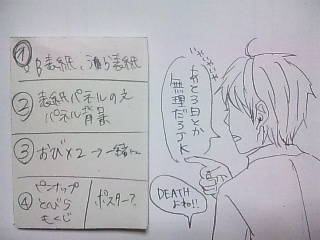 ①
表紙、裏表紙
②
表紙パネルのえ
パネル背景
③ おび×2→一緒に
④
ピンナップ
とびら
もくじ
ポスター?
いやいやいや
あと3日とか
無理だろJK
DEATH
よね!!